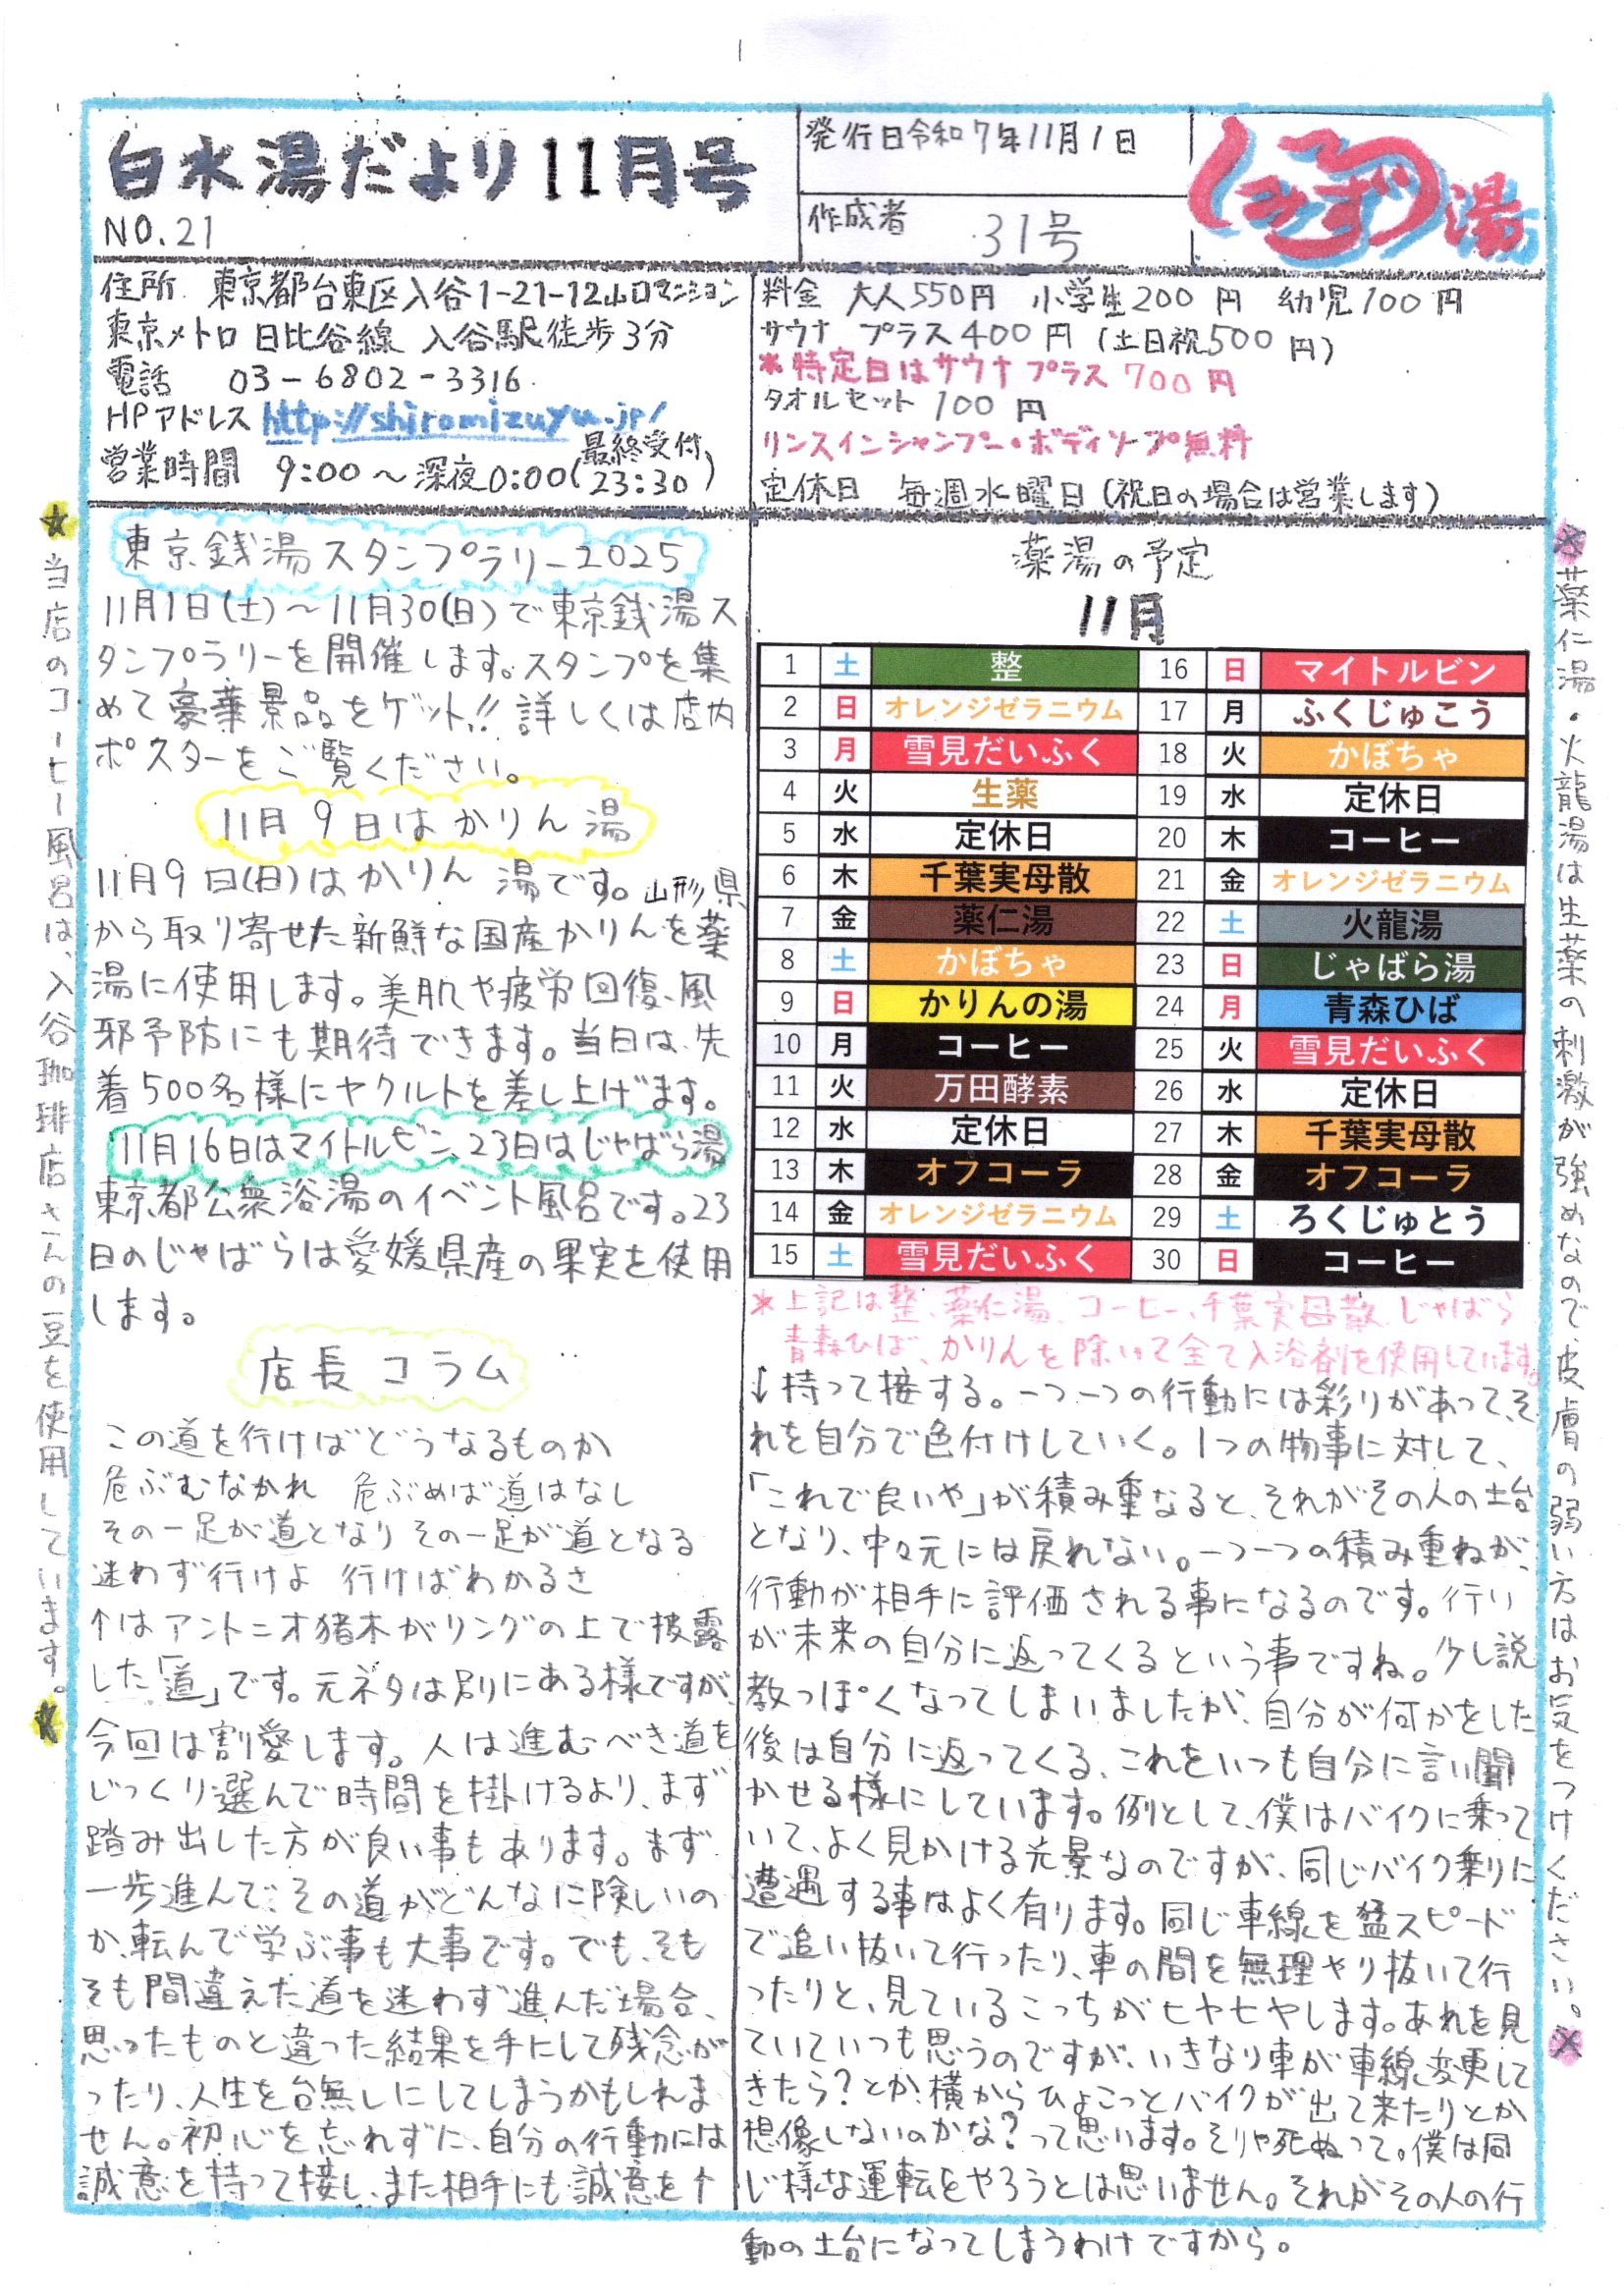 白水湯だより11月号
NO.21
発行日令和7年11月1日
作成者 31号
しろみず湯
住所 東京都台東区入谷1-21-12山口マンション
東京メトロ日比谷線 入谷駅徒歩3分
電話 03-6802-3316
HPアドレス http://shiromizuyu.jp/
営業時間 9:00～深夜0:00(最終受付23:30)
料金 大人550円 小学生200円 幼児100円
サウナ プラス400円(土日祝500円)
*特定日はサウナプラス700円
タオルセット100円
リンスインシャンプー・ボディソープ無料
定休日 毎週水曜日(祝日の場合は営業します)
★当店のコーヒー風呂は、入谷珈琲店さんの豆を使用しています。★
東京銭湯スタンプラリー2025
11月1日(土)～11月30(日)で東京銭湯ス
タンプラリーを開催します。スタンプを集
めて豪華景品をゲット!! 詳しくは店内
ポスターをご覧ください。
11月9日はかりん湯
11月9日(日)はかりん湯です。山形県
から取り寄せた新鮮な国産かりんを薬
湯に使用します。美肌や疲労回復、風
邪予防にも期待できます。当日は、先
着500名様にヤクルトを差し上げます。
11月16日はマイトルビン、23日はじゃばら湯
東京都公衆浴湯のイベント風呂です。23
日のじゃばらは愛媛県産の果実を使用
します。
店長コラム
この道を行けばどうなるものか
危ぶむなかれ 危ぶめば道はなし
その一足が道となり その一足が道となる
迷わず行けよ 行けばわかるさ
↑はアントニオ猪木がリングの上で披露
した「道」です。元ネタは別にある様ですが、
今回は割愛します。人は進むべき道を
じっくり選んで時間を掛けるより、まず
踏み出した方が良い事もあります。まず
一歩進んで、その道がどんなに険しいの
か、転んで学ぶ事も大事です。でも、そも
そも間違えた道を迷わず進んだ場合、
思ったものと違った結果を手にして残念が
ったり、人生を台無しにしてしまうかもしれま
せん。初心を忘れずに、自分の行動には
誠意を持って接し、また相手にも誠意を↑
薬湯の予定
11月
1 土 整
2 日 オレンジゼラニウム
3 月 雪見だいふく
4 火 生薬
5 水 定休日
6 木 千葉実母散
7 金 薬仁湯
8 土 かぼちゃ
9 日 かりんの湯
10 月 コーヒー
11 火 万田酵素
12 水 定休日
13 木 オフコーラ
14 金 オレンジゼラニウム
15 土 雪見だいふく
16 日 マイトルビン
17 月 ふくじゅこう
18 火 かぼちゃ
19 水 定休日
20 木 コーヒー
21 金 オレンジゼラニウム
22 土 火龍湯
23 日 じゃばら湯
24 月 青森ひば
25 火 雪見だいふく
26 水 定休日
27 木 千葉実母散
28 金 オフコーラ
29 土 ろくじゅとう
30 日 コーヒー
*上記は整、薬仁湯、コーヒー、千葉実母散、じゃばら
青森ひば、かりんを除いて全て入浴剤を使用しています。
↓持って接する。一つ一つの行動には彩りがあって、そ
れを自分で色付けしていく。1つの物事に対して、
「これで良いや」が積み重なると、それがその人の土台
となり、中々元には戻れない。一つ一つの積み重ねが、
行動が相手に評価される事になるのです。行い
が未来の自分に返ってくるという事ですね。少し説
教っぽくなってしまいましたが、自分が何かをした
後は自分に返ってくる、これをいつも自分に言い聞
かせる様にしています。例として、僕はバイクに乗って
いて、よく見かける光景なのですが、同じバイク乗りに
遭遇する事はよく有ります。同じ車線を猛スピード
で追い抜いて行ったり、車の間を無理やり抜いて行
ったりと、見ているこっちがヒヤヒヤします。あれを見
ていていつも思うのですが、いきなり車が車線変更して
きたら?とか、横からひょこっとバイクが出て来たりとか
想像しないのかな?って思います。そりゃ死ぬって。僕は同
じ様な運転をやろうとは思いません。それがその人の行
動の土台になってしまうわけですから。
*薬仁湯・火龍湯は生薬の刺激が強めなので、皮膚の弱い方はお気をつけください。*